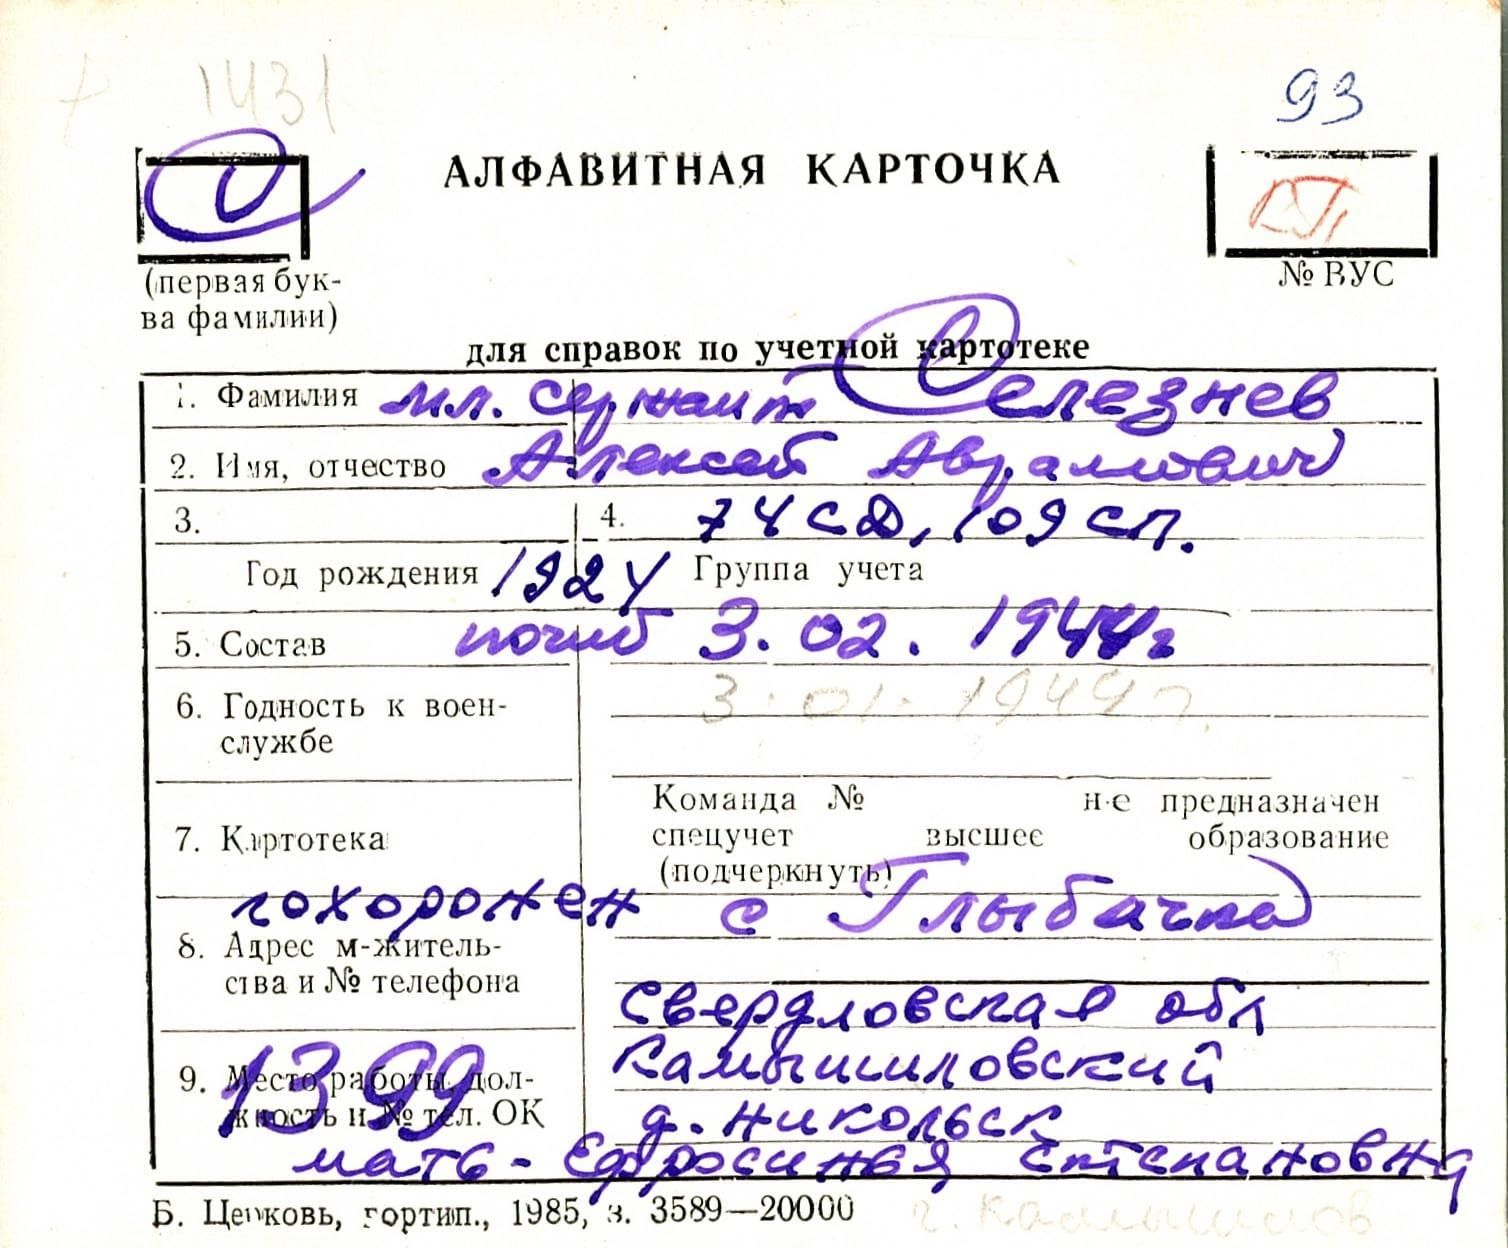 1431
93
АЛФАВИТНАЯ КАРТОЧКА
(первая бук-
ва фамилии)
№ ВУС
для справок по учетной картотеке
1. Фамилия мл. сержант Селезнев
2. Имя, отчество Алексей Аврамович
3. 4. 74 СД, 109 сп.
Год рождения 1924 Группа учета
5. Состав погиб 3. 02. 1944г
3. 01. 1944г.
6. Годность к воен-
службе
Команда № не предназначен
7. Картотека спецучет высшее образование
(подчеркнуть)
похоронен с Глыбачка
8. Адрес м-житель-
ства и № телефона
Свердловская обл
Камышиловский
9. Место работы, дол-
жность и № тел. ОК
1399
д. Никольск
мать - Ефросинья Степановна
Б. Церковь, гортип., 1985, з. 3589—20000
г. Камышилов